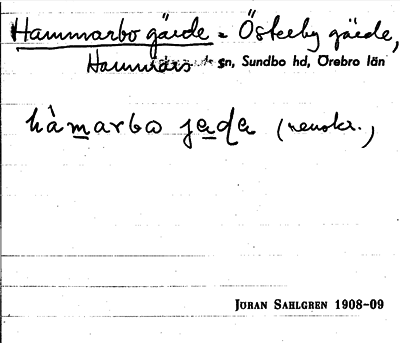 Hammarbo gärde = Österby gärde,
Hammars sn, Sundbo hd, Örebro län
hàmarbo jạḍa (renskr.)
JÖRAN SAHLGREN 1908-09